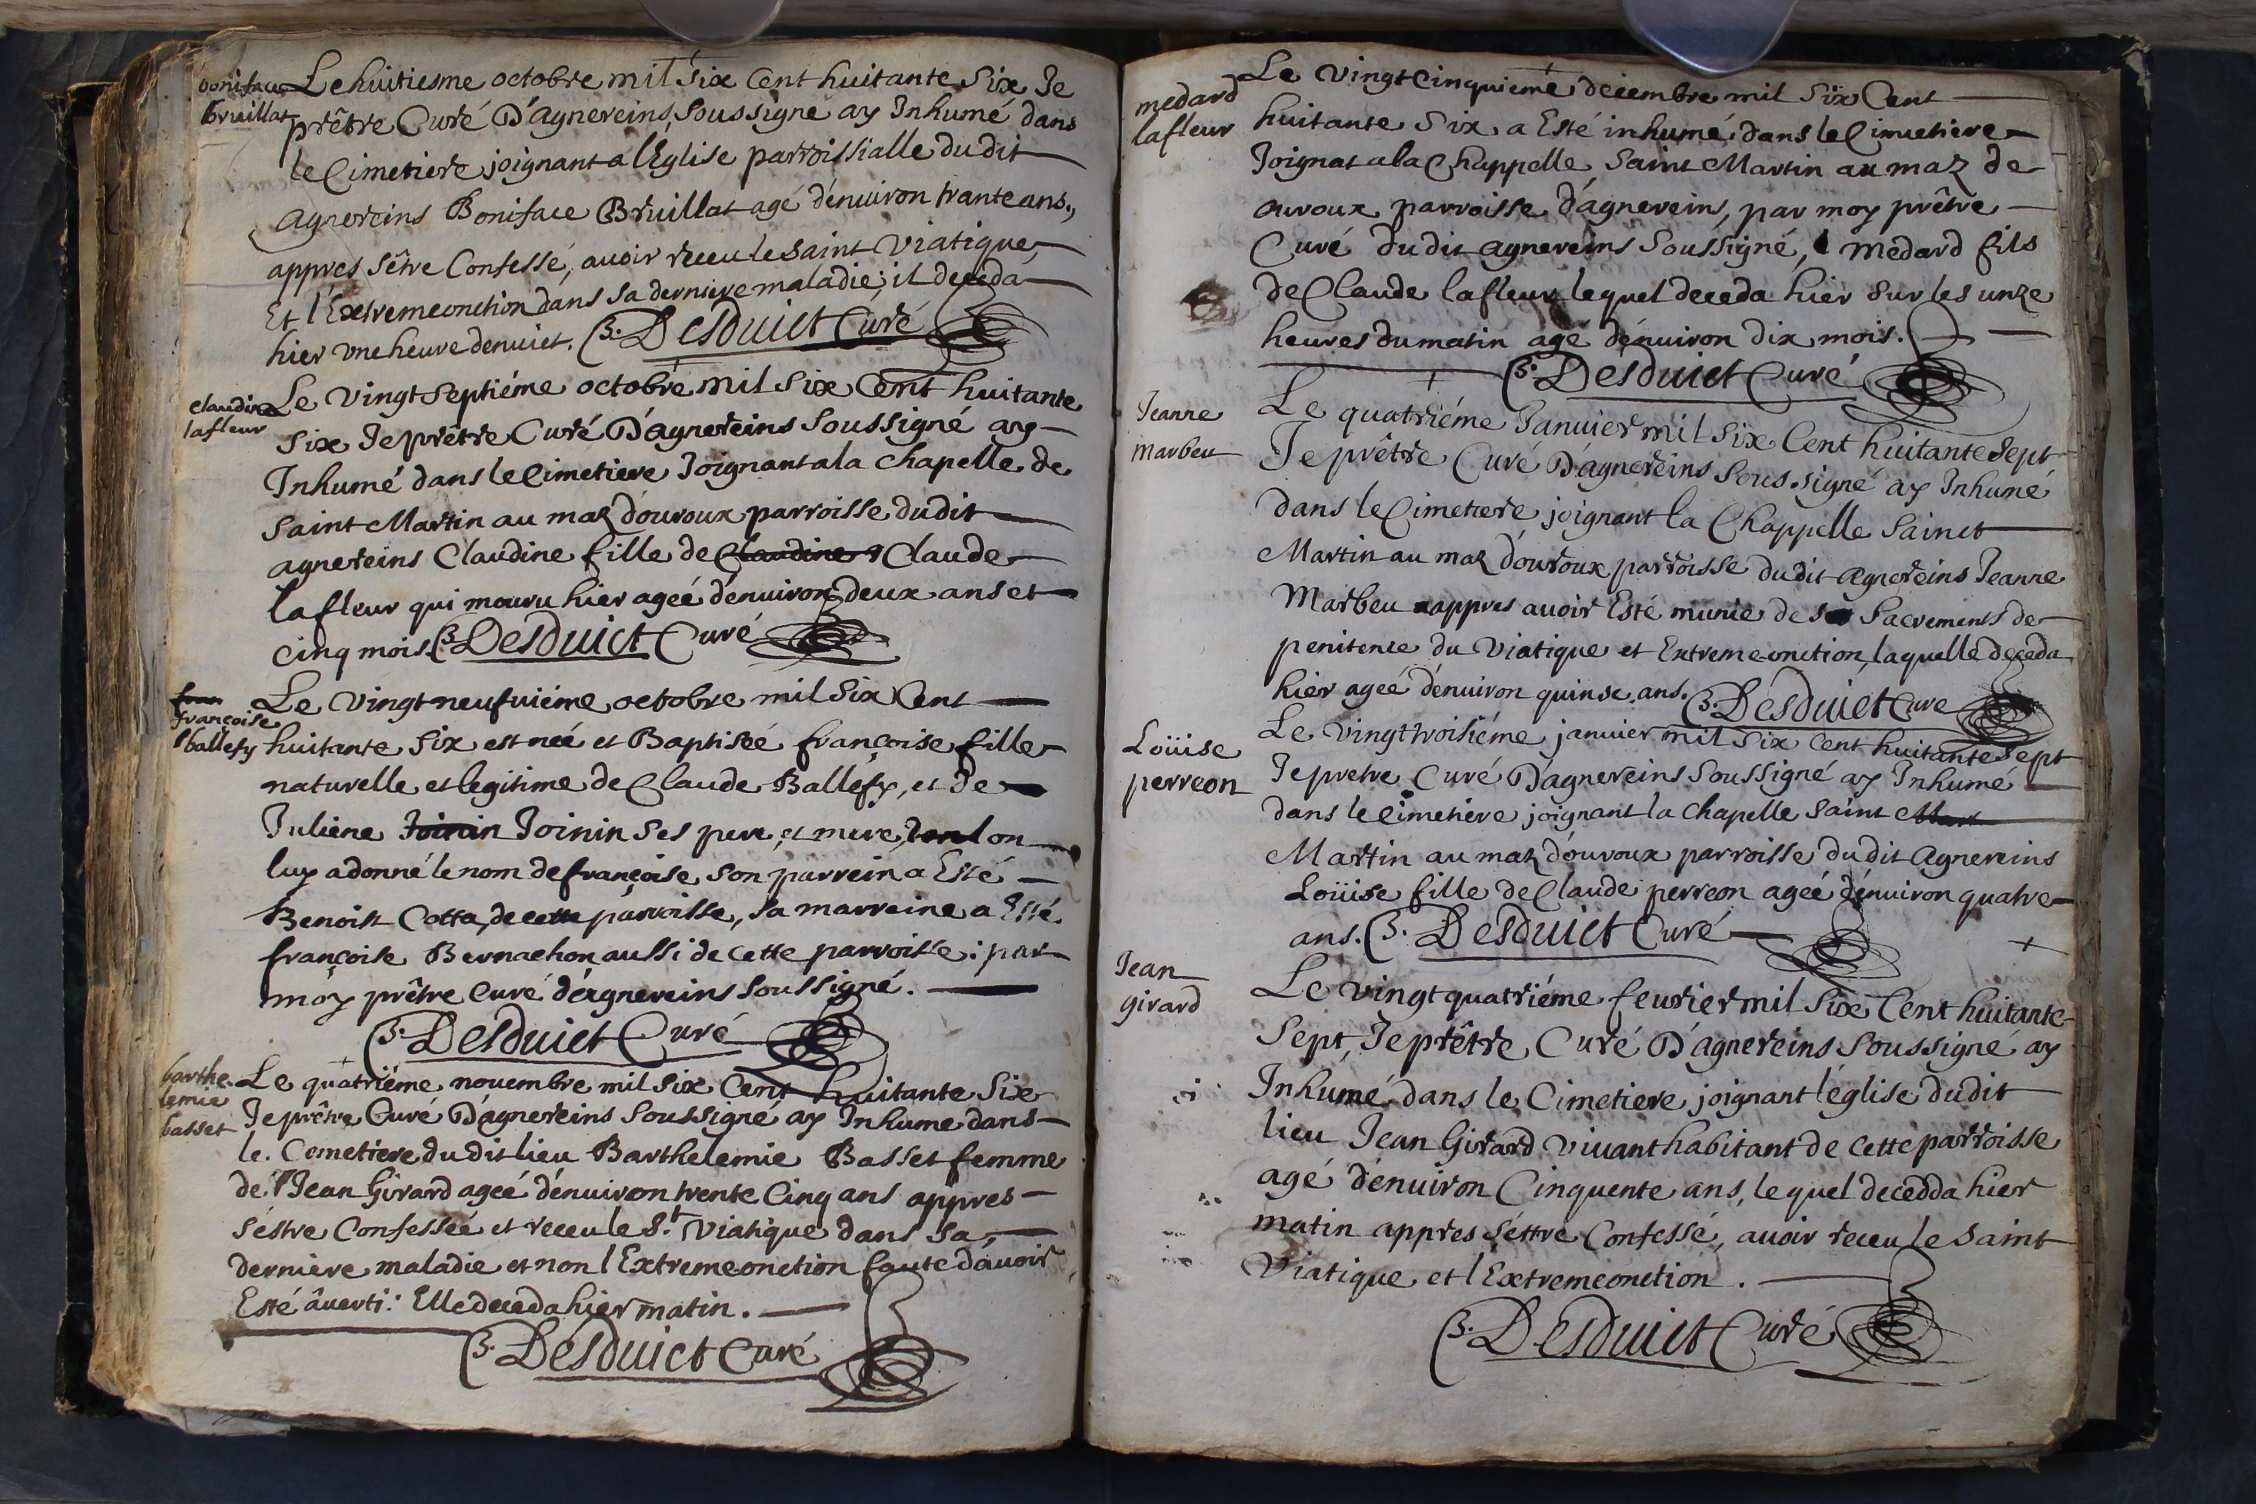 boniface
bruillat
Le huitiesme octobre mil six Cent huitante Six Je
prêtre Curé D'agnereins, Soussigné ay Inhumé dans
le Cimetiere joignant a l'Eglise parroissialle du dit
agnereins Boniface Bruillat agé d'enuiron trante ans,
appres s'être Confessé, auoir receu le saint Viatique
Et l'Extremeonction dans sa derniere maladie; il deceda
hier vne heure de nuict. DesDuict Curé
claudine
lafleur
Le Vingt septiéme octobre mil six Cent huitante
six Je prêtre Curé D'agnereins Soussigné ay
Inhumé dans le Cimetiere Joignant a la chapelle de
saint Martin au maz d'ouroux parroisse du dit
agnereins Claudine fille de Claudine Claude
lafleur qui mouru hier ageé d'enuiron deux ans et
cinq mois. DesDuict Curé
fran
françoise
ballefy
Le Vingt neufuiéme octobre mil Six Cent
huitante Six est neé et Baptiseé françoise fille
naturelle et legitime de Claude Ballefy, et de
Juliene Joinin Joinin ses pere, et mere, on
luy a donné le nom de françoise son parrein a Esté
Benoist Cotta, de cette parroisse, sa marreine a Esté
françoise Bernachon aussi de cette parroisse : par
moy prêtre curé d'agnereins soussigné.
DesDuict Curé
barthe
lemie
basset
Le quatriéme novembre mil six Cent huitante six
Je prêtre Curé D'agnereins Soussigné ay Inhumé dans
le Cemetiere du dit lieu Barthelemie Basset femme
de Jean Girard ageé d'enuiron trente Cinq ans appres
s'estre Confesseé et receu le St. Viatique dans sa
derniere maladie et non l'Extremeonction faute d'auoir
Esté âuerti : Elle deceda hier matin.
DesDuict Curé
medard
lafleur
Le Vingt Cinquiéme decembre mil Six Cent
huitante Six a Esté inhumé dans le Cimetiere
Joignat a la Chappelle Saint Martin au maz de
ouroux parroisse d'agnereins, par moy prêtre
Curé du dit agnereins Soussigné, medard fils
de Claude lafleur lequel deceda hier sur les unze
heures du matin agé d'enuiron dix mois.
DesDuict Curé
Jeanne
Marbeu
Le quatriéme Januier mil Six Cent huitante sept
Je prêtre Curé D'agnereins Soussigné ay Inhumé
dans le Cimetiere joignant la Chappelle Sainct
Martin au maz d'ouroux parroisse du dit agnereins Jeanne
Marbeu appres auoir Esté munie des Sacrements de
penitence du Viatique et Extreme-onction laquelle deceda
hier ageé d'enuiron quinse ans. DesDuict Cure
Loüise
perreon
Le Vingt troisiéme januier mil Six Cent huitante sept
Je pretre Curé D'agnereins Soussigné ay Inhumé
dans le Cimetiere joignant la chapelle saint Mart
Martin au maz d'ouroux parroisse du dit agnereins
Loüise fille de Claude perreon ageé d'enuiron quatre
ans. DesDuict Curé
Jean
girard
Le Vingt quatriéme feurier mil Six Cent huitante
Sept, Je prêtre Curé D'agnereins Soussigné ay
Inhumé dans le Cimetiere joignant l'église du dit
lieu Jean Girard Viuant habitant de cette parroisse
agé d'enuiron Cinquente ans, lequel decedda hier
matin appres s'éttre Confessé, auoir receu le saint
Viatique et l'Extremeonction.
DesDuict Curé